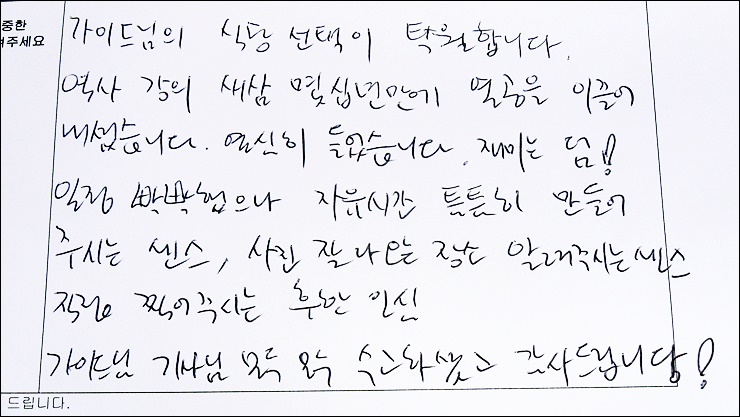 중한
겨주세요
가이드님의 식당 선택이 탁월합니다.
역사 강의 새삼 몇십년만에 열공을 이끌어
내셨습니다. 열심히 들었습니다. 재미는 덤!
일정 빡빡했으나 자유시간 틈틈히 만들어
주시는 센스, 사진 잘 나오는 장소 알려주시는 센스
직접 찍어주시는 후한 인심
가이드님 기사님 모두 모두 수고하셨고 감사드립니다!
드립니다.